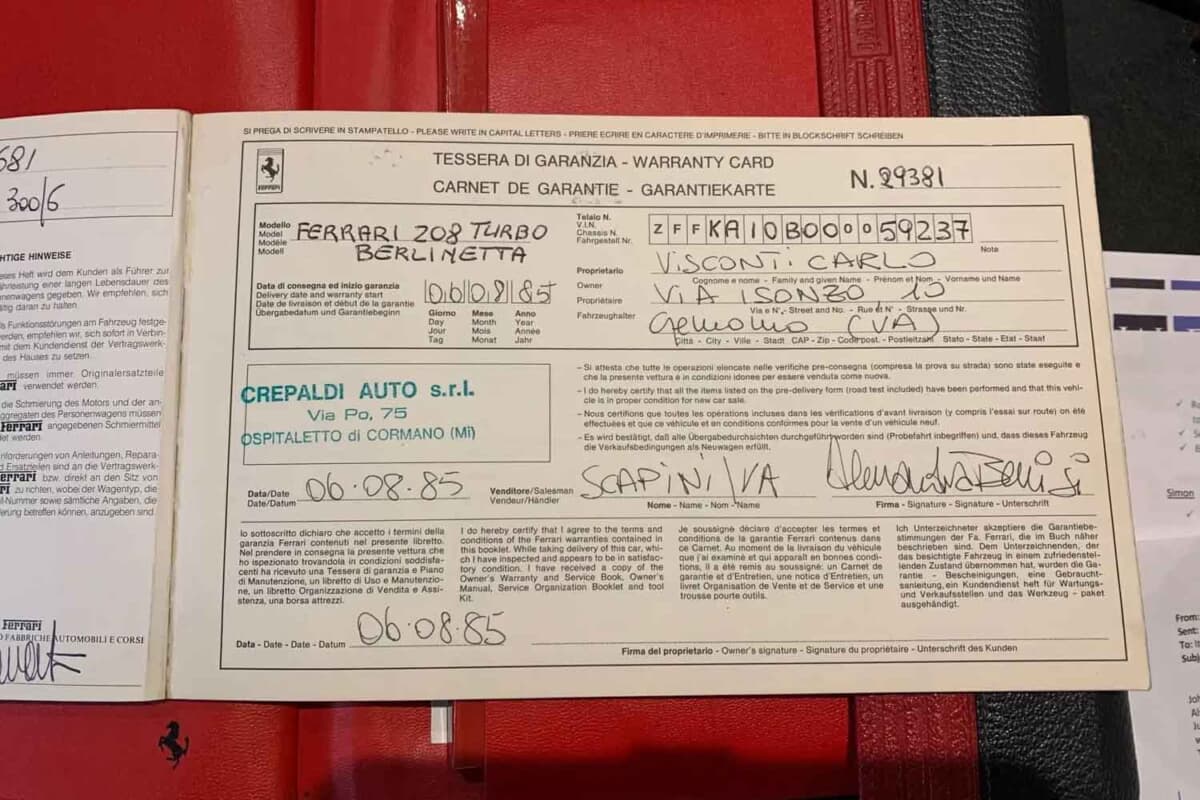 681
300/6
HTIGE HINWEISE
eses Heft wird dem Kunden als Führer zur
ahrleistung einer langen Lebensdauer des
nenwagens gegeben. Wir empfehlen, sich
stig daran zu halten.
s Funktionsstörungen am Fahrzeug festge-
verden, empfehlen wir, sich sofort in Verbin-
mit dem Kundendienst der Vertragswerk-
des Hauses zu setzen.
müssen immer Originalersatzteile
verwendet werden.
die Schmierung des Motors und der an-
aggregaten des Personenwagens müssen
Ferrari angegebenen Schmiermittel
det werden.
nforderungen von Anleitungen, Repara-
d Ersatzteilen sind an die Vertragswerk-
errari bzw. direkt an den Sitz von
zu richten, wobei der Wagentyp, die
l-Nummer sowie sämtliche Angaben, die
erung betreffen können, anzugeben sind.
Ferrari
FABBRICHE AUTOMOBILI E CORSI
SI PREGA DI SCRIVERE IN STAMPATELLO - PLEASE WRITE IN CAPITAL LETTERS - PRIERE ECRIRE EN CARACTERE D'IMPRIMERIE - BITTE IN BLOCKSCHRIFT SCHREIBEN
FERRARI
TESSERA DI GARANZIA - WARRANTY CARD
CARNET DE GARANTIE - GARANTIEKARTE
N. 29381
Modello
Model
Modèle
Modell
FERRARI 208 TURBO
BERLINETTA
Telaio N.
V.I.N.
Chassis N.
Fahrgestell Nr.
ZFFKA10B000059237
Note
Data di consegna ed inizio garanzia
Delivery date and warranty start
Date de livraison et début de la garantie
Übergabedatum und Garantiebeginn
06 08 85
Giorno Mese Anno
Day Month Year
Jour Mois Année
Tag Monat Jahr
Proprietario
Owner
Propriétaire
Fahrzeughalter
VISCONTI CARLO
Cognome e nome - Family and given Name - Prénom et Nom - Vorname und Name
VIA ISONZO, 10
Via e N° - Street and No. - Rue et N° - Strasse und Nr.
(VA)
Città - City - Ville - Stadt CAP - Zip - Code post. - Postleitzahl Stato - State - Etat - Staat
CREPALDI AUTO s.r.l.
Via Po, 75
OSPITALETTO di CORMANO (Mi)
– Si attesta che tutte le operazioni elencate nelle verifiche pre-consegna (compresa la prova su strada) sono state eseguite e
che la presente vettura e in condizioni idonee per essere venduta come nuova.
– I do hereby certify that all the items listed on the pre-delivery form (road test included) have been performed and that this vehi-
cle is in proper condition for new car sale.
– Nous certifions que toutes les opérations incluses dans les vérifications d'avant livraison (y compris l'essai sur route) on été
effectuées et que ce véhicule et en conditions conformes pour la vente d'un véhicule neuf.
– Es wird bestätigt, daß alle Übergabedurchsichten durchgeführt worden sind (Probefahrt inbegriffen) und, dass dieses Fahrzeug
die Verkaufsbedingungen als Neuwagen erfüllt.
Data/Date
Date/Datum
06·08·85
Venditore/Salesman
Vendeur/Händler
SCAPINI IVA
Nome - Name - Nom - Name
Firma - Signature - Signature - Unterschrift
Io sottoscritto dichiaro che accetto i termini della
garanzia Ferrari contenuti nel presente libretto.
Nel prendere in consegna la presente vettura che
ho ispezionato trovandola in condizioni soddisfa-
centi ha ricevuto una Tessera di garanzia e Piano
di Manutenzione, un libretto di Uso e Manutenzio-
ne, un libretto Organizzazione di Vendita e Assi-
stenza, una borsa attrezzi.
I do hereby certify that I agree to the terms and
conditions of the Ferrari warranties contained in
this booklet. While taking delivery of this car, whi-
ch I have inspected and appears to be in satisfac-
tory condition. I have received a copy of the
Owner's Warranty and Service Book, Owner's
Manual, Service Organization Booklet and tool
Kit.
Je soussigné déclare d'accepter les termes et
conditions de la garantie Ferrari contenus dans
ce Carnet. Au moment de la livraison du véhicule
que j'ai examiné et qui apparaît en bonnes condi-
tions, il a été remis au soussigné: un Carnet de
garantie et d'Entretien, une notice d'Entretien, un
livret Organisation de Vente et de Service et une
trousse pourte outils.
Ich Unterzeichneter akzeptiere die Garantiebe-
stimmungen der Fa. Ferrari, die im Buch näher
beschrieben sind. Dem Unterzeichnenden, der
das besichtigte Fahrzeug in einem zufriedenstel-
lenden Zustand übernommen hat, wurden die Ga-
rantie - Bescheinigungen, eine Gebraucht-
sanleitung, ein Kundendienst heft für Wartungs-
und Verkaufsstellen und das Werkzeug - paket
ausgehändigt.
Data - Date - Date - Datum
06·08·85
Firma del proprietario - Owner's signature - Signature du propriétaire - Unterschrift des Kunden
Simon
From:
Sent:
To:
Subj